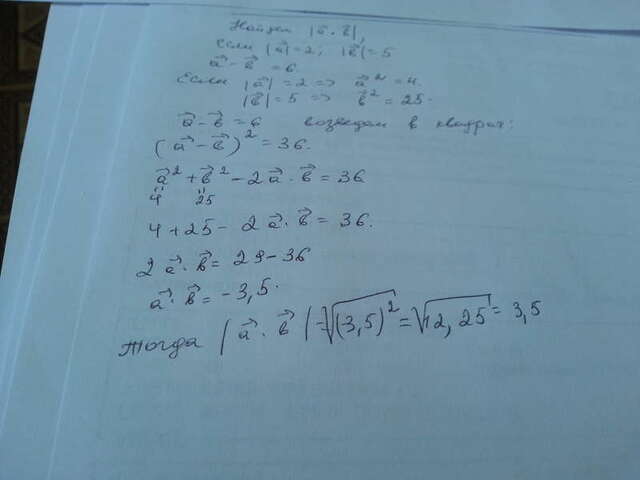 Найдем |a⃗ · b⃗|,
Если |a⃗|=2; |b⃗|=5
a⃗ - b⃗ = 6.
Если |a⃗| = 2 => a⃗² = 4.
|b⃗| = 5 => b⃗² = 25.
a⃗ - b⃗ = 6 возведем в квадрат:
(a⃗ - b⃗)² = 36.
a⃗² + b⃗² - 2a⃗ · b⃗ = 36
4 25
4 + 25 - 2a⃗ · b⃗ = 36.
2a⃗ · b⃗ = 29 - 36
a⃗ · b⃗ = -3,5.
Тогда |a⃗ · b⃗| = √(3,5)² = √12,25 = 3,5